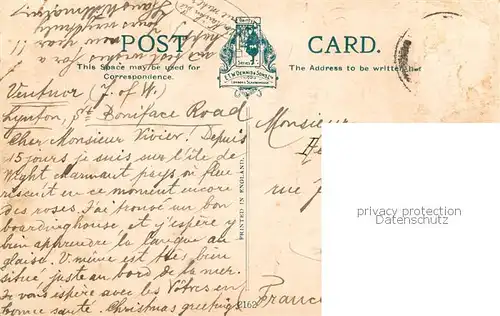 POST CARD.
This Space may be used for
Correspondence.
The Address to be written
E.T.W. DENNIS & SONS LTD
PRINTED IN ENGLAND.
2162
Ventnor (I. of W.)
Lynton, St Boniface Road
Cher Monsieur Vivier! Depuis
15 jours je suis sur l'île de
Wight charmant pays, où fleu-
rissent en ce moment encore
des roses. J'ai trouvé un bon
boardinghouse, et j'espère y
bien apprendre la langue an-
glaise. V. même est très bien
situé, juste au bord de la mer.
Je vous espère avec les Vôtres en
bonne santé. Christmas greetings
and happy
new year!!
Monsieur
rue
France
privacy protection
Datenschutz